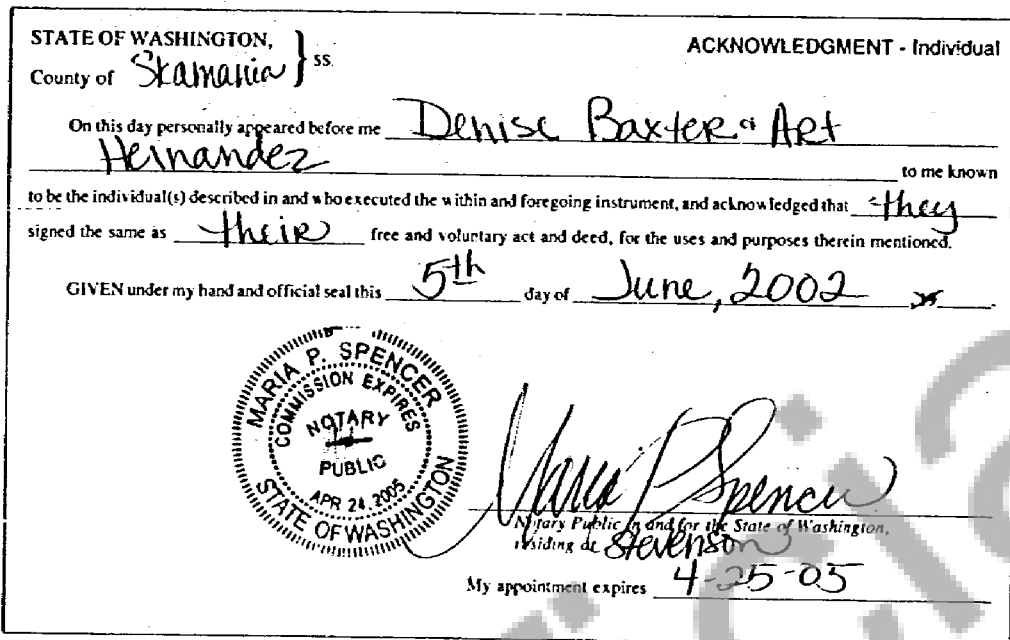 STATE OF WASHINGTON,
ACKNOWLEDGMENT - Individual
County of Skamania } ss.
On this day personally appeared before me Denise Baxter & Art
Hernandez to me known
to be the individual(s) described in and who executed the within and foregoing instrument, and acknowledged that they
signed the same as their free and voluntary act and deed, for the uses and purposes therein mentioned.
GIVEN under my hand and official seal this 5th day of June, 2002
MARIA P. SPENCER
COMMISSION EXPIRES
NOTARY
PUBLIC
APR 24, 2005
STATE OF WASHINGTON
Maria P Spencer
Notary Public in and for the State of Washington,
residing at Stevenson
My appointment expires 4-25-05